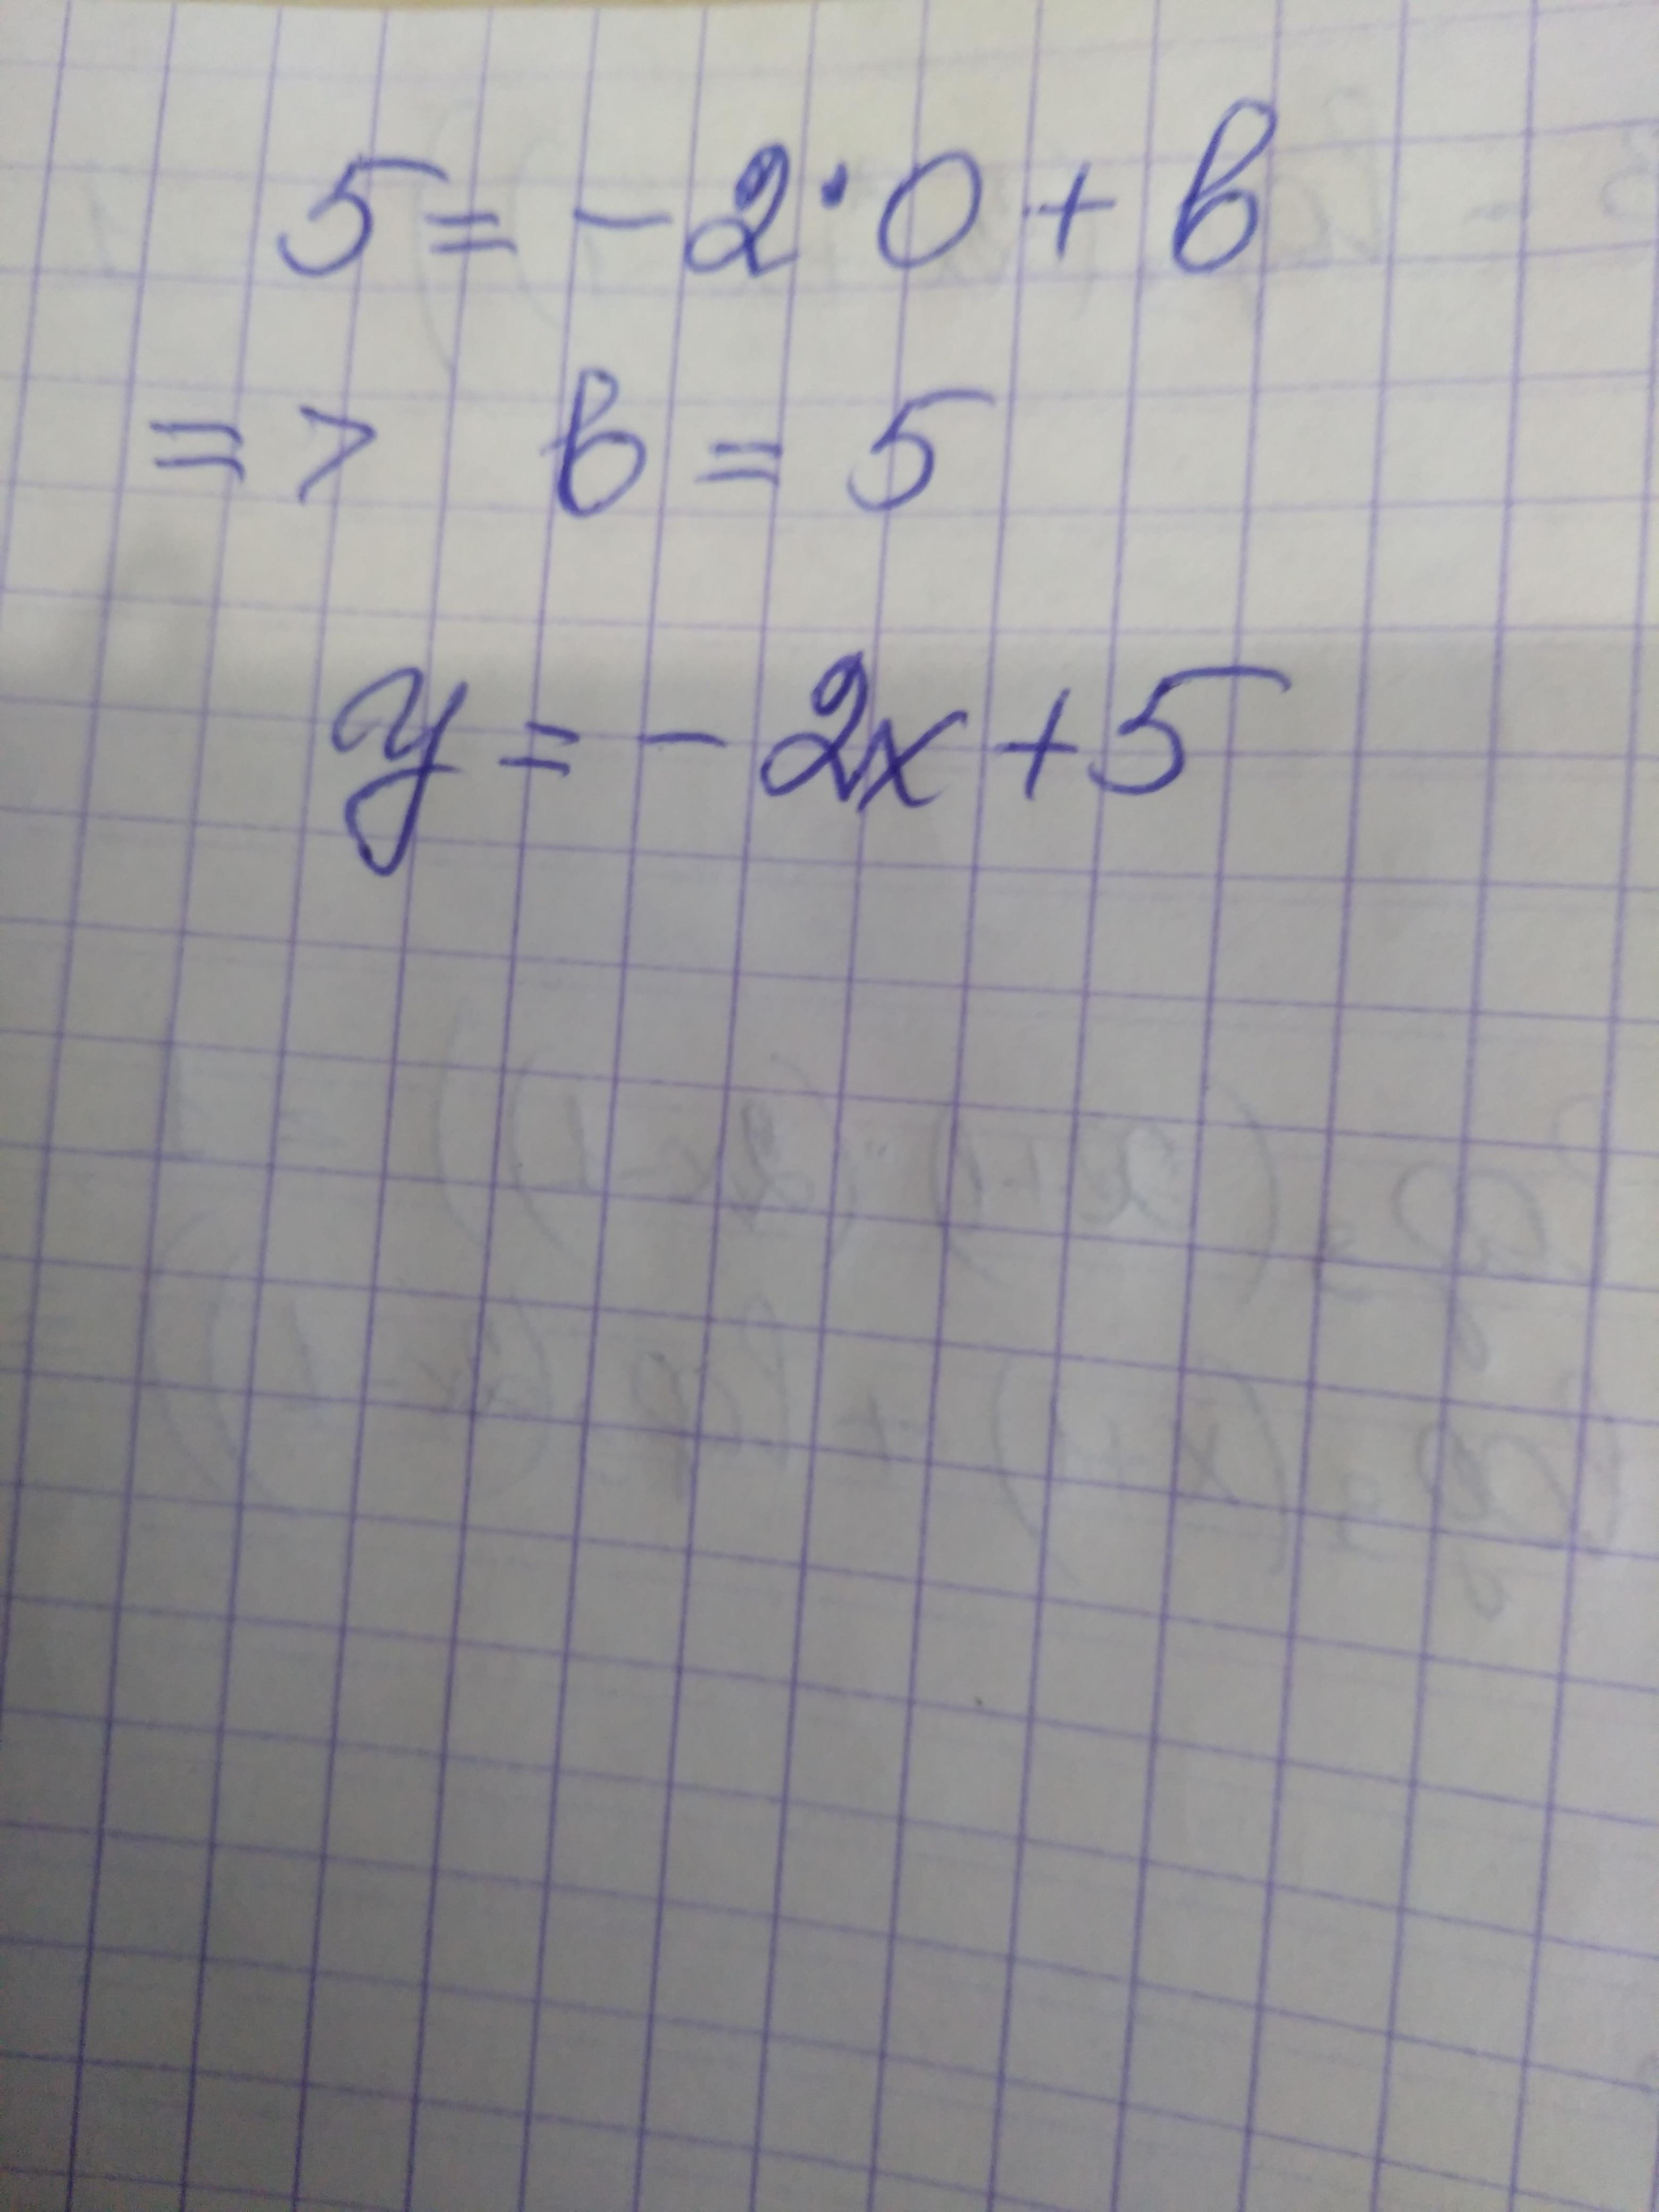 5 = -2·0 + b
=> b = 5
y = -2x + 5